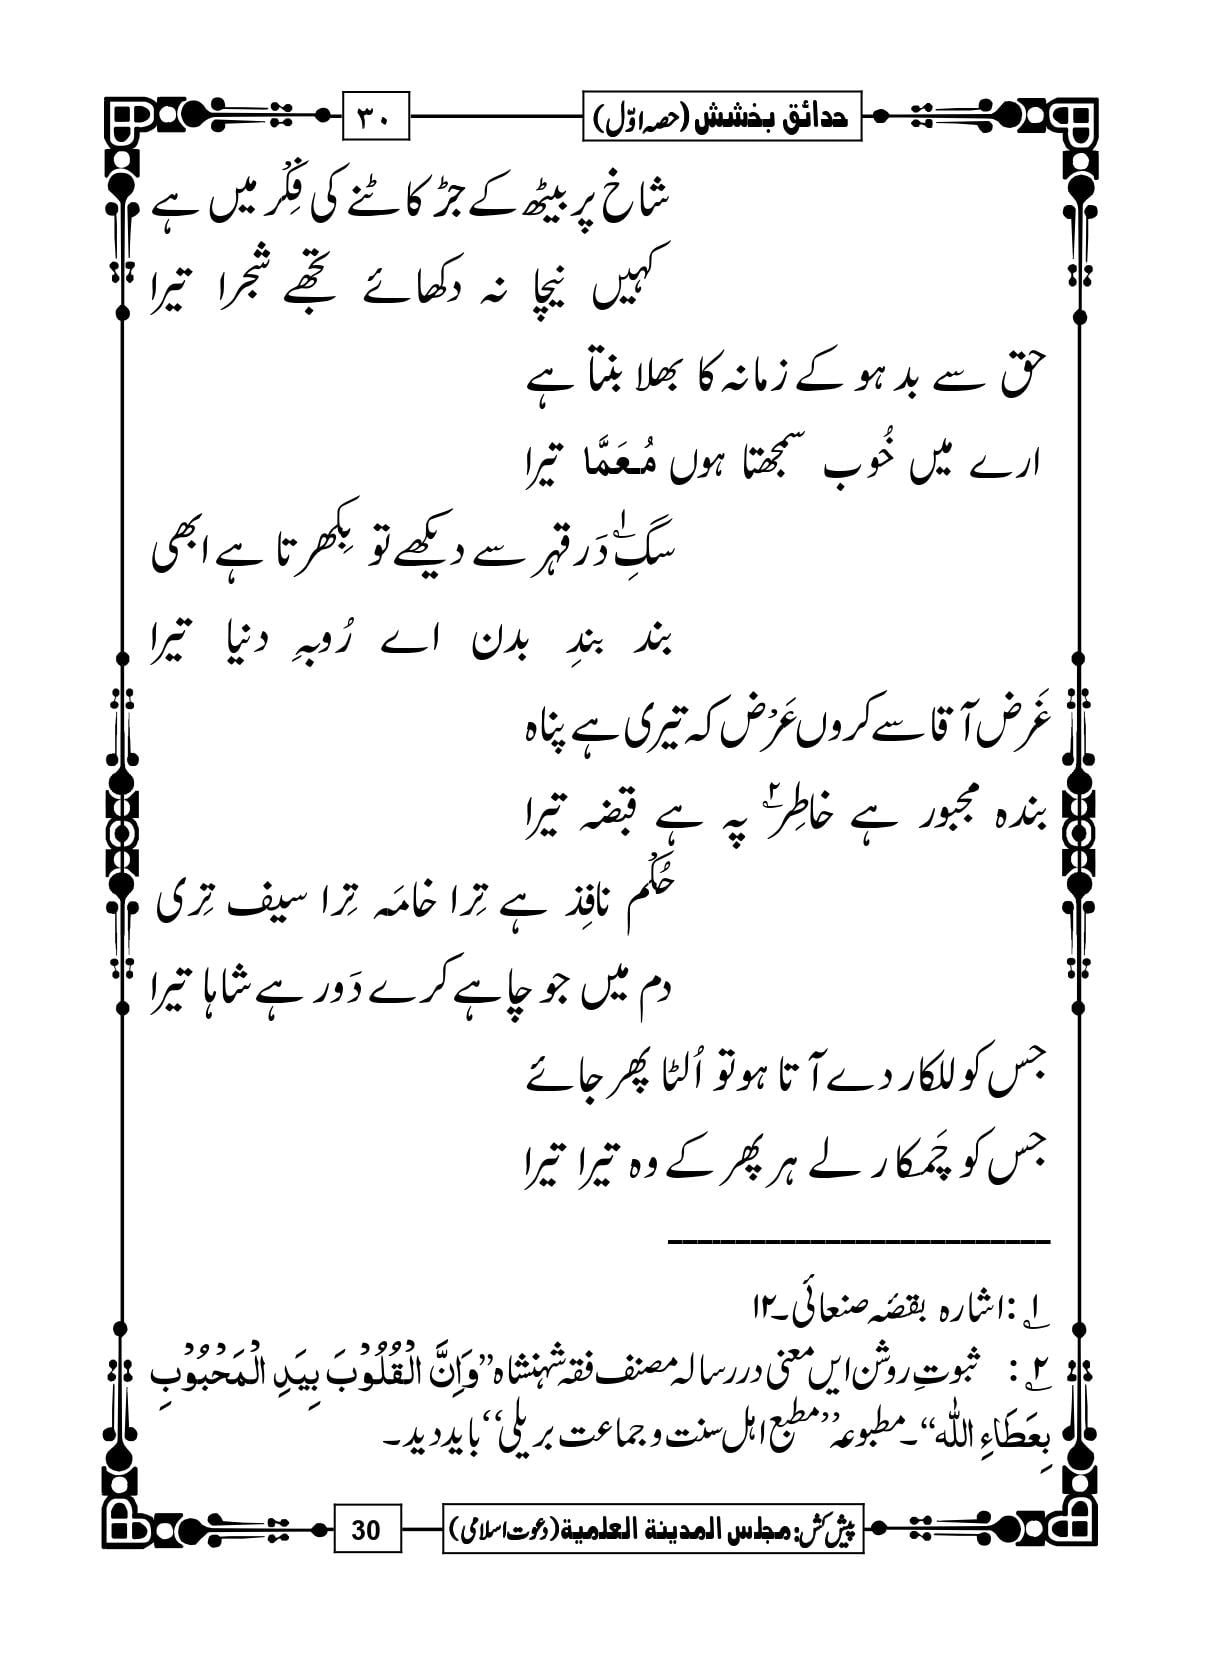 حدائق بخشش (حصہ اوّل) ۳۰
شاخ پر بیٹھ کے جڑ کاٹنے کی فِکْر میں ہے
کہیں نیچا نہ دکھائے تجھے شجرا تیرا
حق سے بد ہو کے زمانہ کا بھلا بنتا ہے
ارے میں خُوب سمجھتا ہوں مُعَمَّا تیرا
سگِ۱؎ دَر قہر سے دیکھے تو بِکھرتا ہے ابھی
بند بندِ بدن اے رُوبہِ دنیا تیرا
غَرض آقا سے کروں عَرْض کہ تیری ہے پناہ
بندہ مجبور ہے خاطِر۲؎ پہ ہے قبضہ تیرا
حُکْم نافِذ ہے تِرا خامَہ تِرا سیف تِری
دم میں جو چاہے کرے دَور ہے شاہا تیرا
جس کو للکار دے آتا ہو تو اُلٹا پھر جائے
جس کو چَمکار لے ہر پھر کے وہ تیرا تیرا
۱؎ :اشارہ بقصّہ صنعائی۔۱۲
۲؎ : ثبوتِ روشن ایں معنی در رسالہ مصنف فقہ شہنشاہ ”وَاِنَّ الْقُلُوْبَ بِیَدِ الْمَحْبُوْبِ
بِعَطَاءِ اللّٰہ“۔مطبوعہ ”مطبع اہل سنت و جماعت بریلی“ باید دید۔
پیش کش: مجلس المدینۃ العلمیۃ (دعوت اسلامی) 30